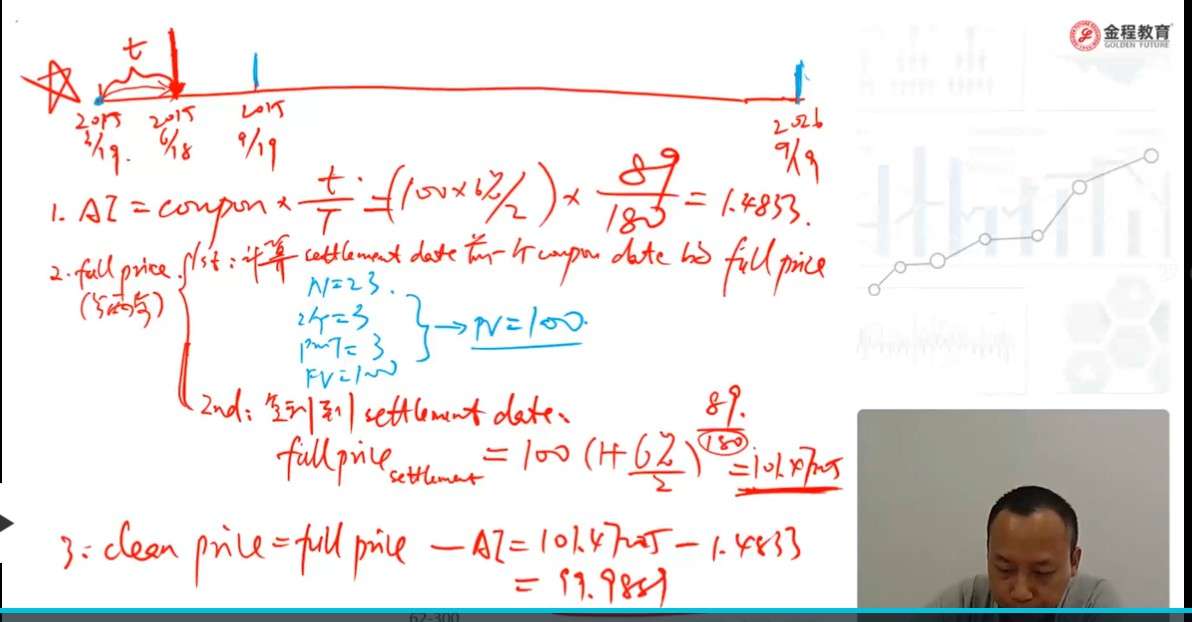 金程教育
GOLDEN FUTURE
t
2015 2015 2015 2026
3/19. 6/18 9/19 9/19
1. AI = coupon × t/T = (100×6%/2) × 89/180 = 1.4833.
2. full price. 1st: 计算 settlement date 前一个 coupon date 的 full price
N=23.
I/Y=3
PMT=3
FV=100
→ PV=100.
2nd: settlement date.
full price settlement = 100 (1+6%/2) 89/180 = 101.4725
3. clean price = full price - AI = 101.4725 - 1.4833
= 99.9889
62-300